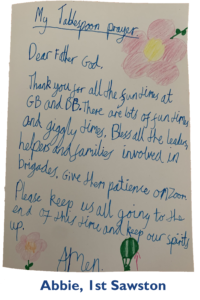 My Tablespoon prayer
Dear Father God,
Thank you for all the fun times at
GB and BB. There are lots of fun times
and giggly times. Bless all the leaders
helpers and families involved in
brigades. Give them patience on Zoom
Please keep us all going to the
end of this time and keep our spirits
up.
Amen.
Abbie, 1st Sawston